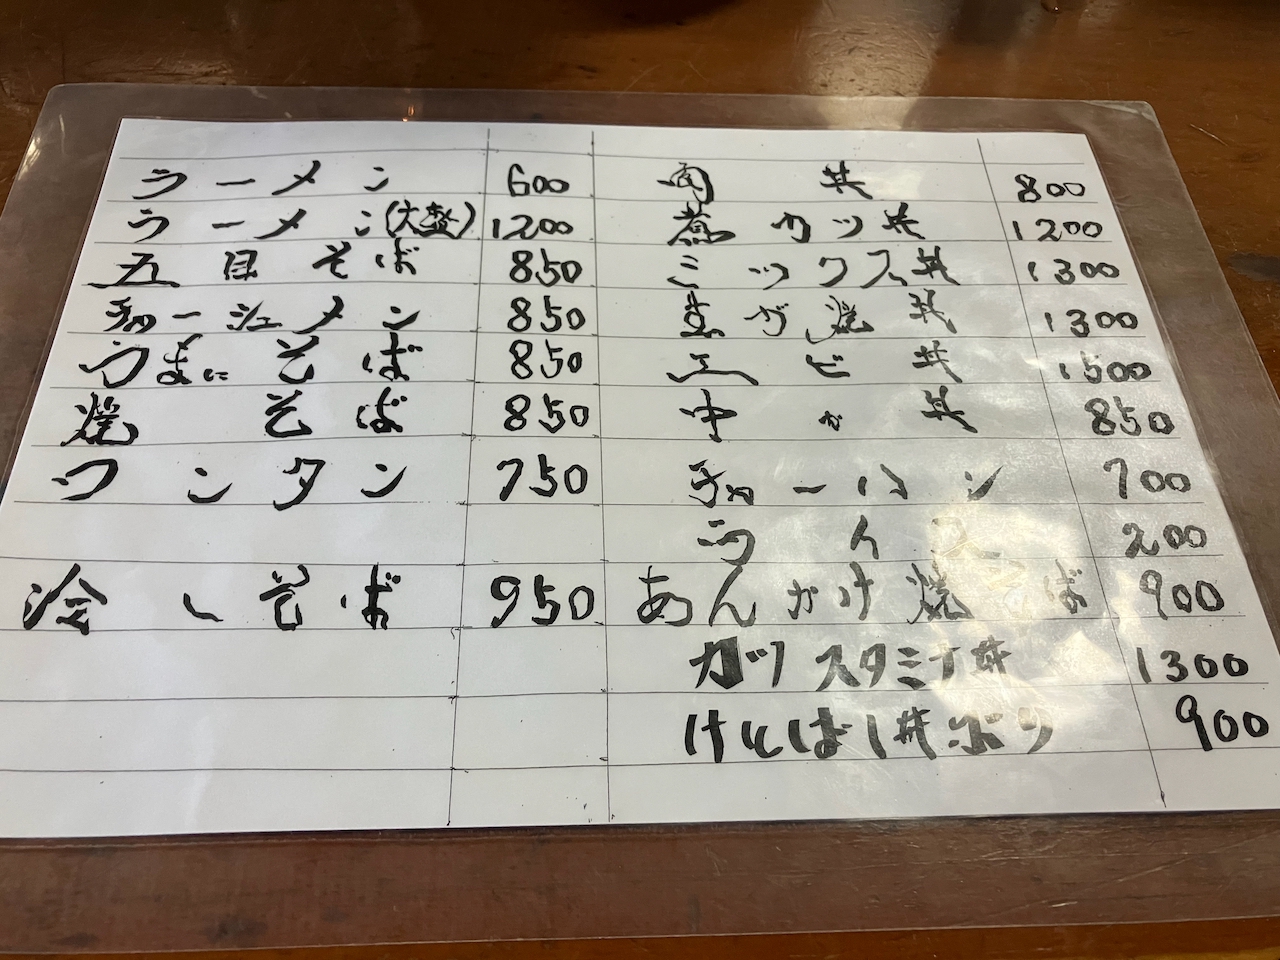 ラーメン 600
ラーメン(大盛) 1200
五目そば 850
チャーシューメン 850
うまにそば 850
焼そば 850
ワンタン 750
冷しそば 950
肉丼 800
煮カツ丼 1200
ミックス丼 1300
生が焼丼 1300
エビ丼 1500
中か丼 850
チャーハン 700
ライス 200
あんかけ焼そば 900
ガツスタミナ丼 1300
けんばし丼 900